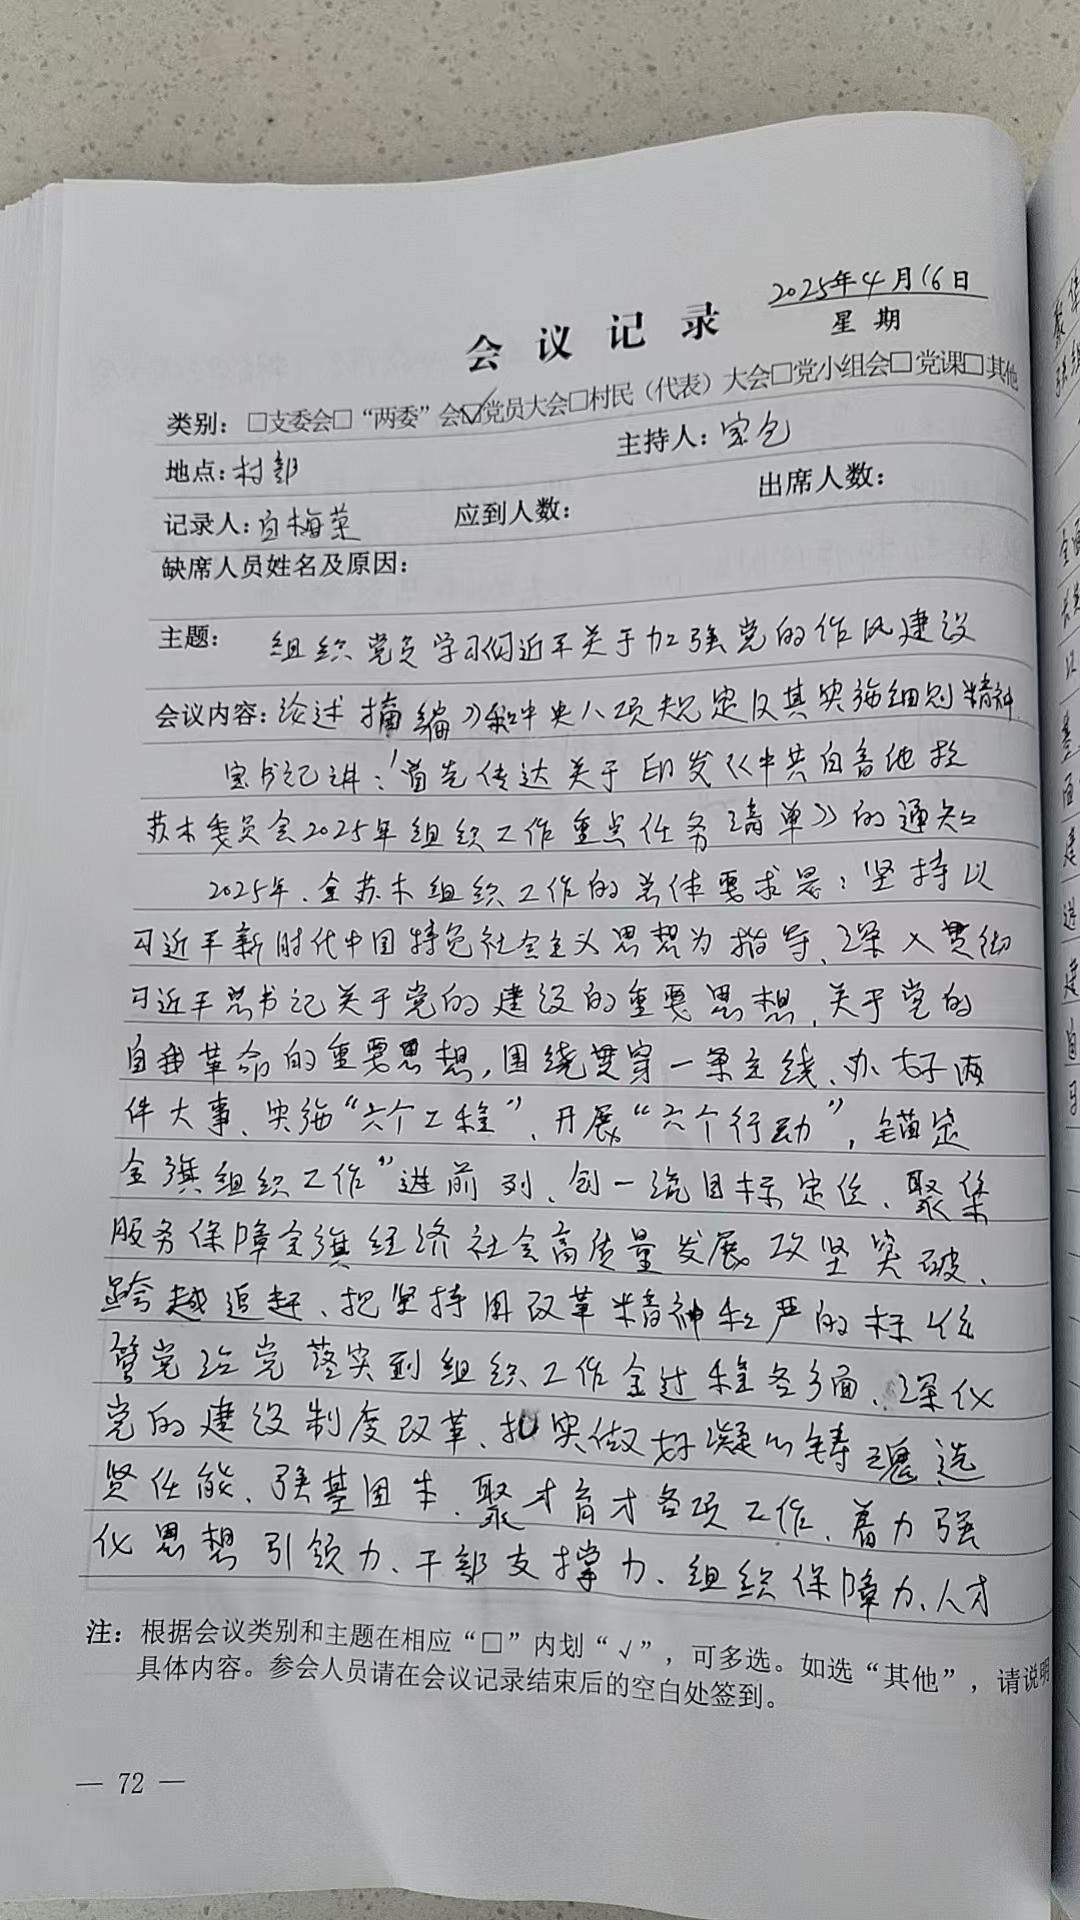 2025年4月16日
会议记录
星期
类别：□支委会□“两委”会☑党员大会□村民（代表）大会□党小组会□党课□其他
地点：村部 主持人：宝仓
记录人：白梅荣 应到人数： 出席人数：
缺席人员姓名及原因：
主题： 组织党员学习《习近平关于加强党的作风建设
会议内容：论述摘编》和中央八项规定及其实施细则精神
宝书记讲：首先传达关于印发《中共白音他拉
苏木委员会2025年组织工作重点任务清单》的通知
2025年、全苏木组织工作的总体要求是：坚持以
习近平新时代中国特色社会主义思想为指导、深入贯彻
习近平总书记关于党的建设的重要思想、关于党的
自我革命的重要思想，围绕贯穿一条主线、办好两
件大事、实施“六个工程”、开展“六个行动”，锚定
全旗组织工作”进前列、创一流目标定位、聚集
服务保障全旗经济社会高质量发展攻坚突破、
跨越追赶、把坚持用改革精神和严的标准
管党治党落实到组织工作全过程各方面、深化
党的建设制度改革、扎实做好凝心铸魂选
贤任能、强基固本、聚才育才各项工作、着力强
化思想引领力、干部支撑力、组织保障力、人才
注：根据会议类别和主题在相应“□”内划“√”，可多选。如选“其他”，请说明
具体内容。参会人员请在会议记录结束后的空白处签到。
— 72 —